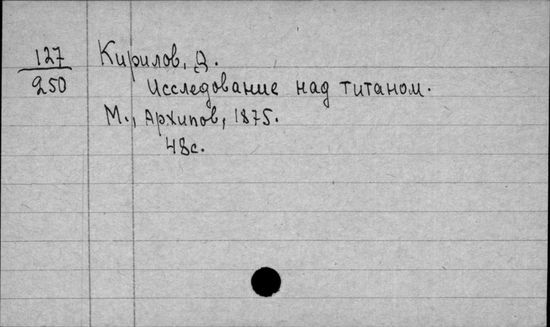 127
250
Кирилов, Д.
Исследование над титаном.
М., Архипов, 1875.
48с.